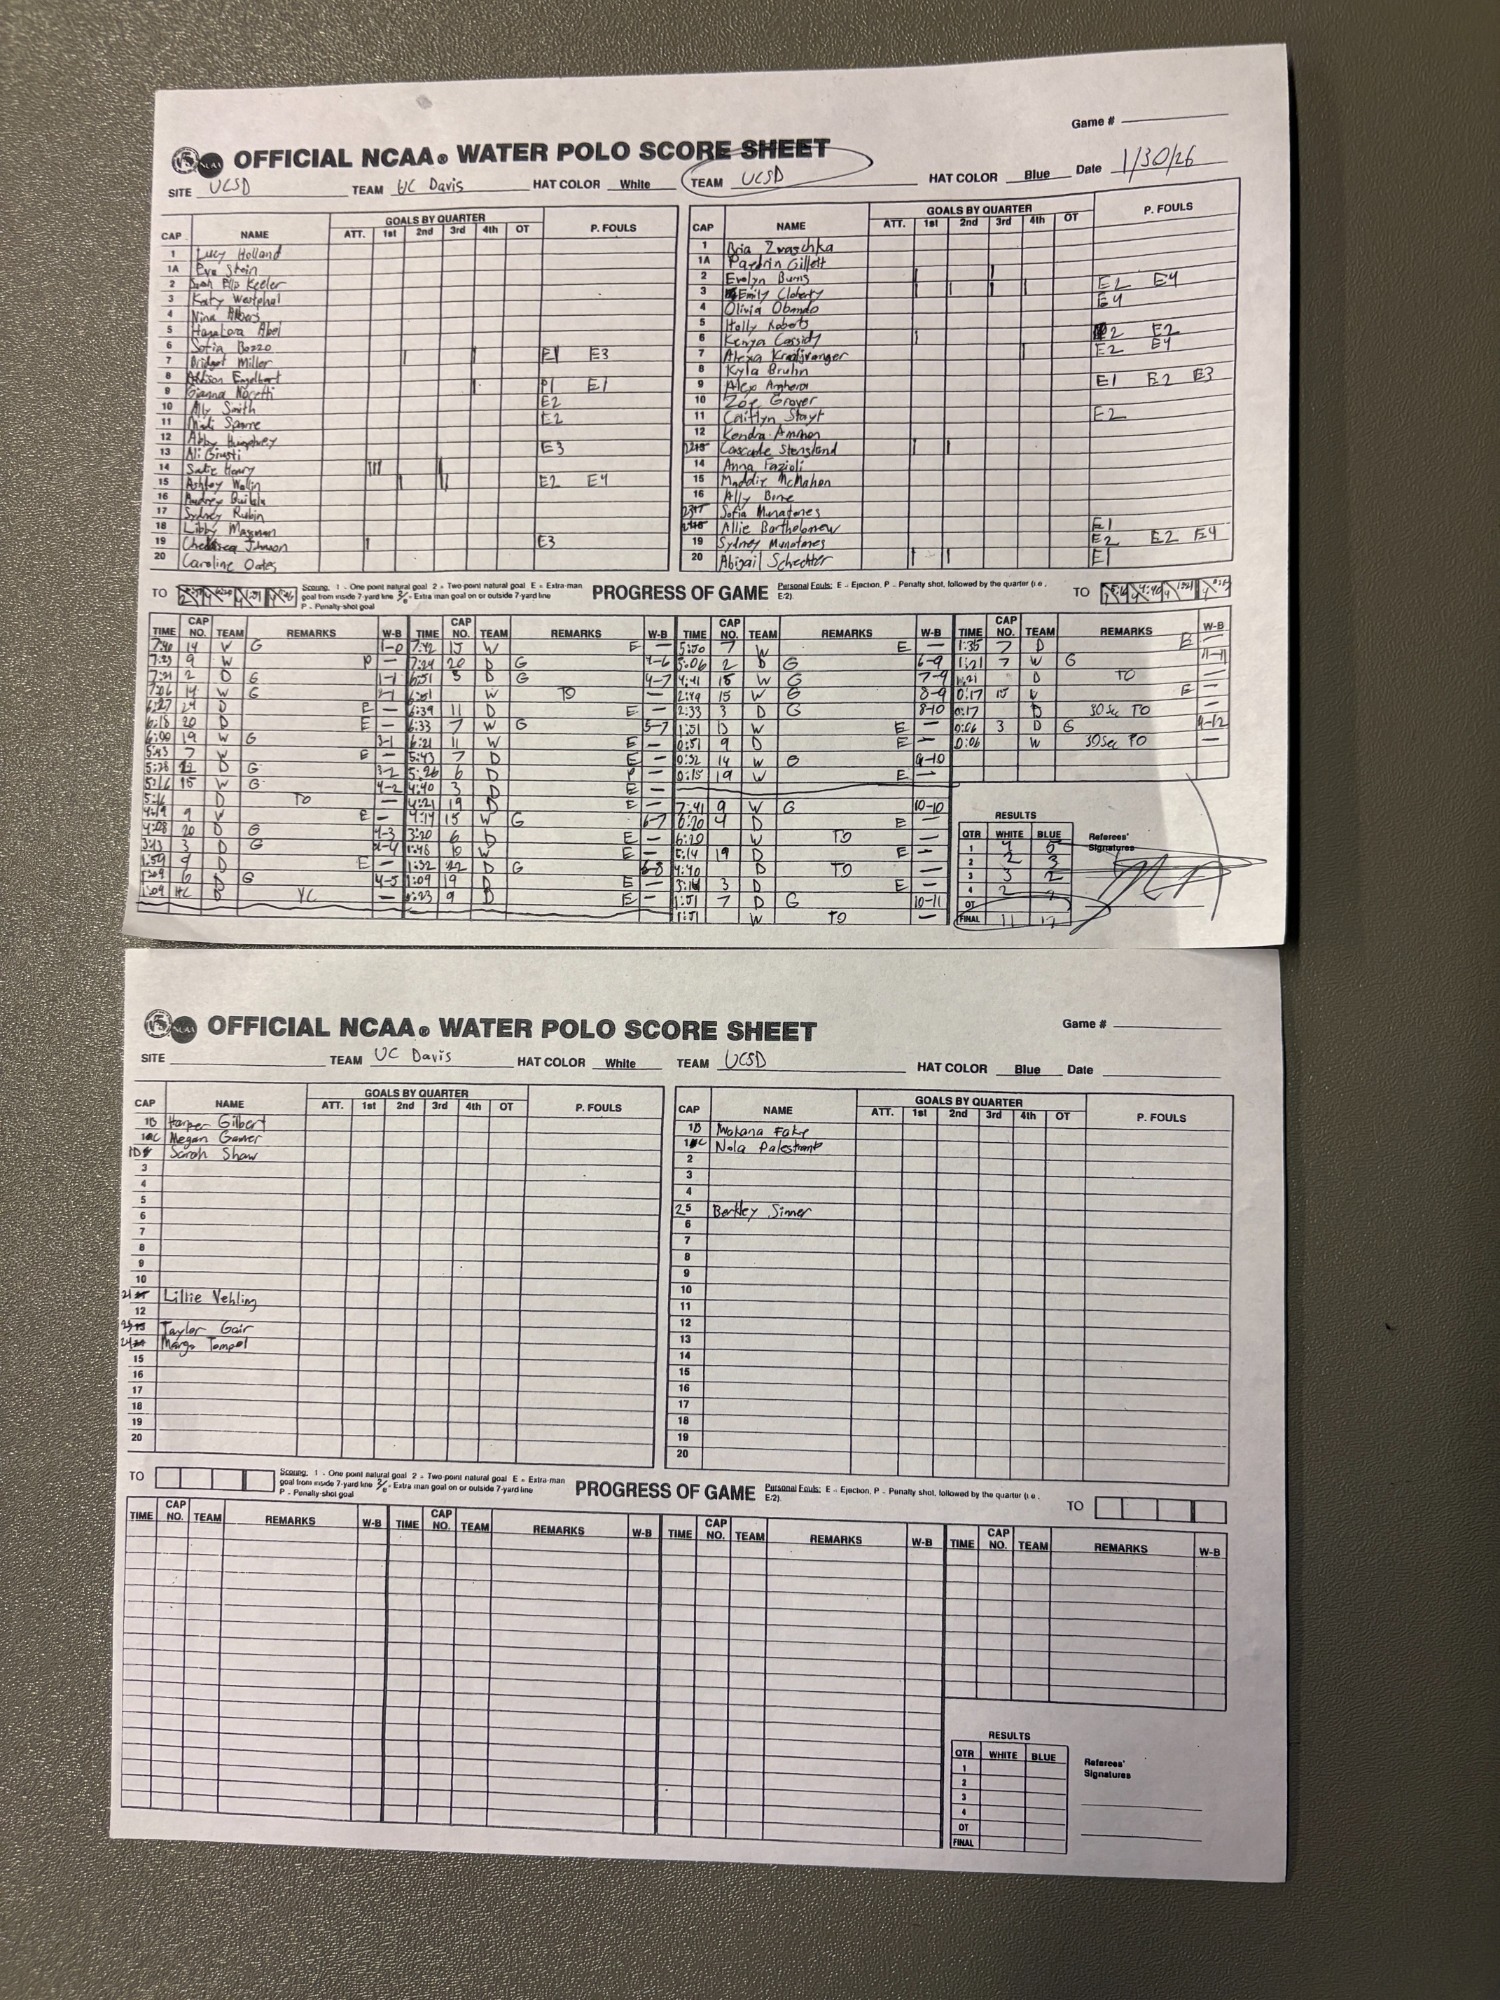 Game #
OFFICIAL NCAA® WATER POLO SCORE SHEET
SITE UCSD TEAM UC Davis HAT COLOR White TEAM UCSD HAT COLOR Blue Date 1/30/26
CAP NAME GOALS BY QUARTER ATT. 1st 2nd 3rd 4th OT P. FOULS
1 Lucy Holland
1A Eva Stein
2 Keeler
3 Katy Westphal
4 Nina Albers
5 Abel
6 Sofia Bozzo
7 Bridget Miller E1 E3
8 Engelbert
9 Gianna Nocetti P1 E1
10 Ally Smith E2
11 E2
12 Abby Humphrey
13 Ali Giusti E3
14 Henry
15 Ashley Wallin E2 E4
16 Audrey
17 Sydney Rubin
18 Libby
19 Johnson E3
20 Caroline Oates
CAP NAME GOALS BY QUARTER ATT. 1st 2nd 3rd 4th OT P. FOULS
1 Zvaschka
1A Gillett
2 Evelyn Burns
3 Emily Cloherty E2 E4
4 Olivia Obando E4
5 Holly Roberts
6 Kenya Cassidy E2
7 Alexa Kraaijvanger E2 E4
8 Kyla Bruhn
9 Alex E1 E2 E3
10 Zoe Grover
11 Caitlyn Stayt E2
12 Kendra Ammon
Cascade Stensland
14 Anna Fazioli
15 Maddie McMahon
16 Ally
Sofia Munatones
Allie Bartholomew E1
19 Sydney Munatones E2 E2 E4
20 Abigail Schechter E1
TO
Scoring: 1 - One point natural goal 2 - Two point natural goal E = Extra-man
goal from inside 7-yard line 2/E - Extra man goal on or outside 7-yard line
P - Penalty-shot goal
PROGRESS OF GAME
Personal Fouls: E - Ejection, P - Penalty shot, followed by the quarter (i.e.,
E2).
TO
TIME CAP NO. TEAM REMARKS W-B
7:40 14 W G 1-0
7:23 9 W P —
7:21 2 D G 1-1
7:06 14 W G 2-1
6:27 24 D E —
6:18 20 D E —
6:00 19 W G 3-1
5:43 7 W E —
5:28 22 D G 3-2
5:16 15 W G 4-2
5:16 D TO —
4:19 9 W E —
4:08 20 D G 4-3
3:13 3 D G 4-4
1:59 9 D E —
1:09 6 D G 4-5
1:09 HC D YC —
TIME CAP NO. TEAM REMARKS W-B
7:42 15 W E —
7:24 20 D G 4-6
6:51 3 D G 4-7
6:51 W TO —
6:39 11 D E —
6:33 7 W G 5-7
6:21 11 W E —
5:43 7 D E —
5:26 6 D P —
4:40 3 D E —
4:21 19 D E —
4:14 15 W G 6-7
3:20 6 D E —
1:48 10 W E —
1:32 22 D G 6-8
1:09 19 D E —
0:23 9 D E —
TIME CAP NO. TEAM REMARKS W-B
5:50 7 W E —
5:06 2 D G 6-9
4:41 15 W G 7-9
2:49 15 W G 8-9
2:33 3 D G 8-10
1:51 13 W E —
0:51 9 D E —
0:32 14 W G 9-10
0:15 19 W E —
7:41 9 W G 10-10
6:20 4 D E —
6:20 W TO —
5:14 19 D E —
4:40 D TO —
3:16 3 D E —
1:51 7 D G 10-11
1:51 W TO —
TIME CAP NO. TEAM REMARKS W-B
1:35 7 D E —
1:21 7 W G 11-11
1:21 D TO —
0:17 15 W E —
0:17 D 30 Sec TO —
0:06 3 D G
0:06 W 30 Sec TO —
RESULTS
QTR WHITE BLUE
1 4 5
2 2 3
3 3 2
4 2
OT
FINAL 11 12
Referees'
Signatures
Game #
OFFICIAL NCAA® WATER POLO SCORE SHEET
SITE TEAM UC Davis HAT COLOR White TEAM UCSD HAT COLOR Blue Date
CAP NAME GOALS BY QUARTER ATT. 1st 2nd 3rd 4th OT P. FOULS
1B Harper Gilbert
1C Megan Gamer
1D Sarah Shaw
3
4
5
6
7
8
9
10
21 Lillie Vehling
12
23 Taylor Gair
24 Margo Tempel
15
16
17
18
19
20
CAP NAME GOALS BY QUARTER ATT. 1st 2nd 3rd 4th OT P. FOULS
1B Makana Fake
1C Nola
2
3
4
25 Berkley Sinner
6
7
8
9
10
11
12
13
14
15
16
17
18
19
20
TO
Scoring: 1 - One point natural goal 2 - Two point natural goal E = Extra-man
goal from inside 7-yard line 2/E - Extra man goal on or outside 7-yard line
P - Penalty-shot goal
PROGRESS OF GAME
Personal Fouls: E - Ejection, P - Penalty shot, followed by the quarter (i.e.,
E2).
TO
TIME CAP NO. TEAM REMARKS W-B TIME CAP NO. TEAM REMARKS W-B TIME CAP NO. TEAM REMARKS W-B TIME CAP NO. TEAM REMARKS W-B
RESULTS
QTR WHITE BLUE
1
2
3
4
OT
FINAL
Referees'
Signatures